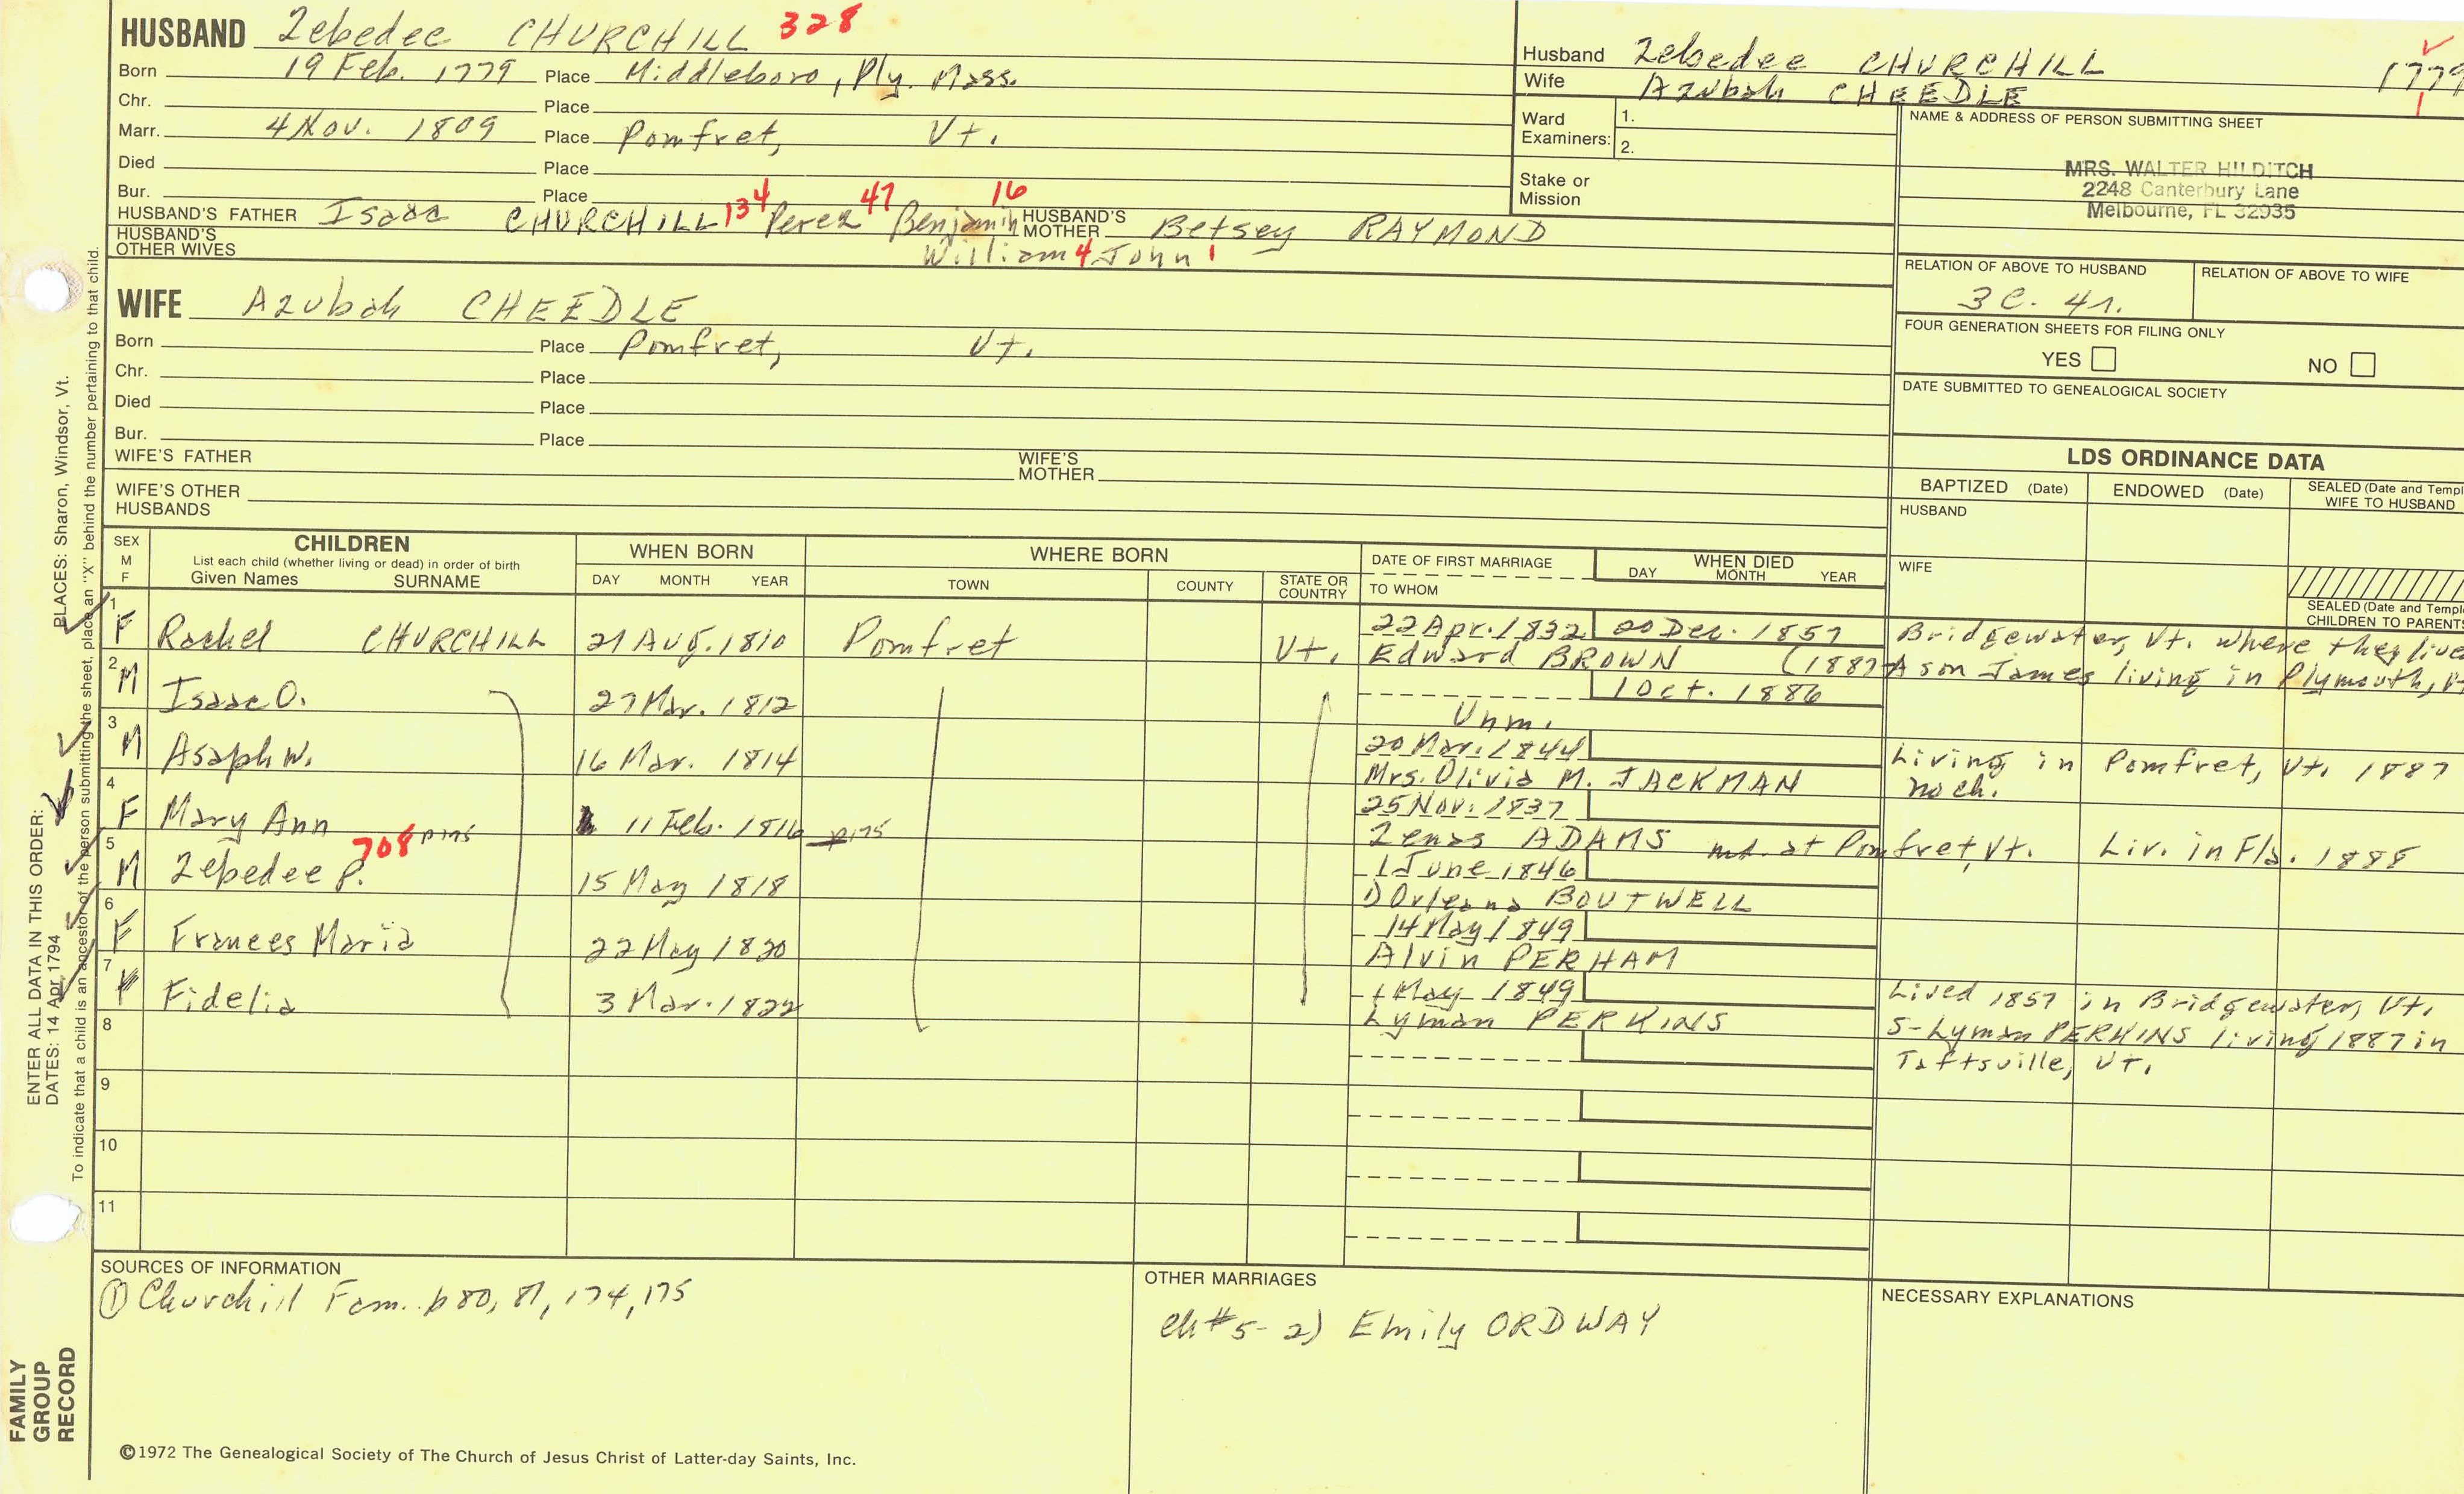 HUSBAND Zebedee CHURCHILL 328
Born 19 Feb. 1779 Place Middleboro, Ply. Mass.
Chr. Place
Marr. 4 Nov. 1809 Place Pomfret, Vt.
Died Place
Bur. Place
HUSBAND'S FATHER Isaac CHURCHILL 134 Perez 47 Benjamin 16 HUSBAND'S MOTHER Betsey RAYMOND
HUSBAND'S OTHER WIVES William 4 John 1
WIFE Azubah CHEEDLE
Born Place Pomfret, Vt.
Chr. Place
Died Place
Bur. Place
WIFE'S FATHER WIFE'S MOTHER
WIFE'S OTHER HUSBANDS
Husband Zebedee CHURCHILL 1779
Wife Azubah CHEEDLE 1
Ward Examiners: 1.
2.
Stake or Mission
NAME & ADDRESS OF PERSON SUBMITTING SHEET
MRS. WALTER HILDITCH
2248 Canterbury Lane
Melbourne, FL 32935
RELATION OF ABOVE TO HUSBAND RELATION OF ABOVE TO WIFE
3C. 4r.
FOUR GENERATION SHEETS FOR FILING ONLY
YES NO
DATE SUBMITTED TO GENEALOGICAL SOCIETY
LDS ORDINANCE DATA
BAPTIZED (Date) ENDOWED (Date) SEALED (Date and Templ
WIFE TO HUSBAND
HUSBAND
WIFE
SEALED (Date and Templ
CHILDREN TO PARENTS
SEX M F CHILDREN WHEN BORN WHERE BORN DATE OF FIRST MARRIAGE WHEN DIED
List each child (whether living or dead) in order of birth
Given Names SURNAME DAY MONTH YEAR TOWN COUNTY STATE OR COUNTRY TO WHOM DAY MONTH YEAR
1 F Rachel CHURCHILL 21 Aug. 1810 Pomfret Vt. 22 Apr. 1832 20 Dec. 1857 Bridgewater, Vt. where they live
Edward BROWN (1887 A son James living in Plymouth, V
2 M Isaac O. 27 Mar. 1812 1 Oct. 1886
Unm.
3 M Asaph W. 16 Mar. 1814 20 Mar. 1844 Living in Pomfret, Vt. 1887
Mrs. Olivia M. JACKMAN no ch.
4 F Mary Ann p175 11 Feb. 1816 p175 25 Nov. 1837
Zenas ADAMS md. at Pomfret, Vt. Liv. in Fla. 1888
5 M Zebedee P. 708 15 May 1818 1 June 1846
1) Orleana BOUTWELL
6 F Frances Maria 22 May 1820 14 May 1849
Alvin PERHAM
7 F Fidelia 3 Mar. 1822 1 May 1849 Lived 1857 in Bridgewater, Vt.
Lyman PERKINS S-Lyman PERKINS living 1887 in
Taftsville, Vt.
8
9
10
11
SOURCES OF INFORMATION
① Churchill Fam. p 80, 81, 174, 175
OTHER MARRIAGES
ch #5- 2) Emily ORDWAY
NECESSARY EXPLANATIONS
©1972 The Genealogical Society of The Church of Jesus Christ of Latter-day Saints, Inc.
FAMILY GROUP RECORD
ENTER ALL DATA IN THIS ORDER:
DATES: 14 Apr 1794 PLACES: Sharon, Windsor, Vt.
To indicate that a child is an ancestor of the person submitting the sheet, place an "X" behind the number pertaining to that child.